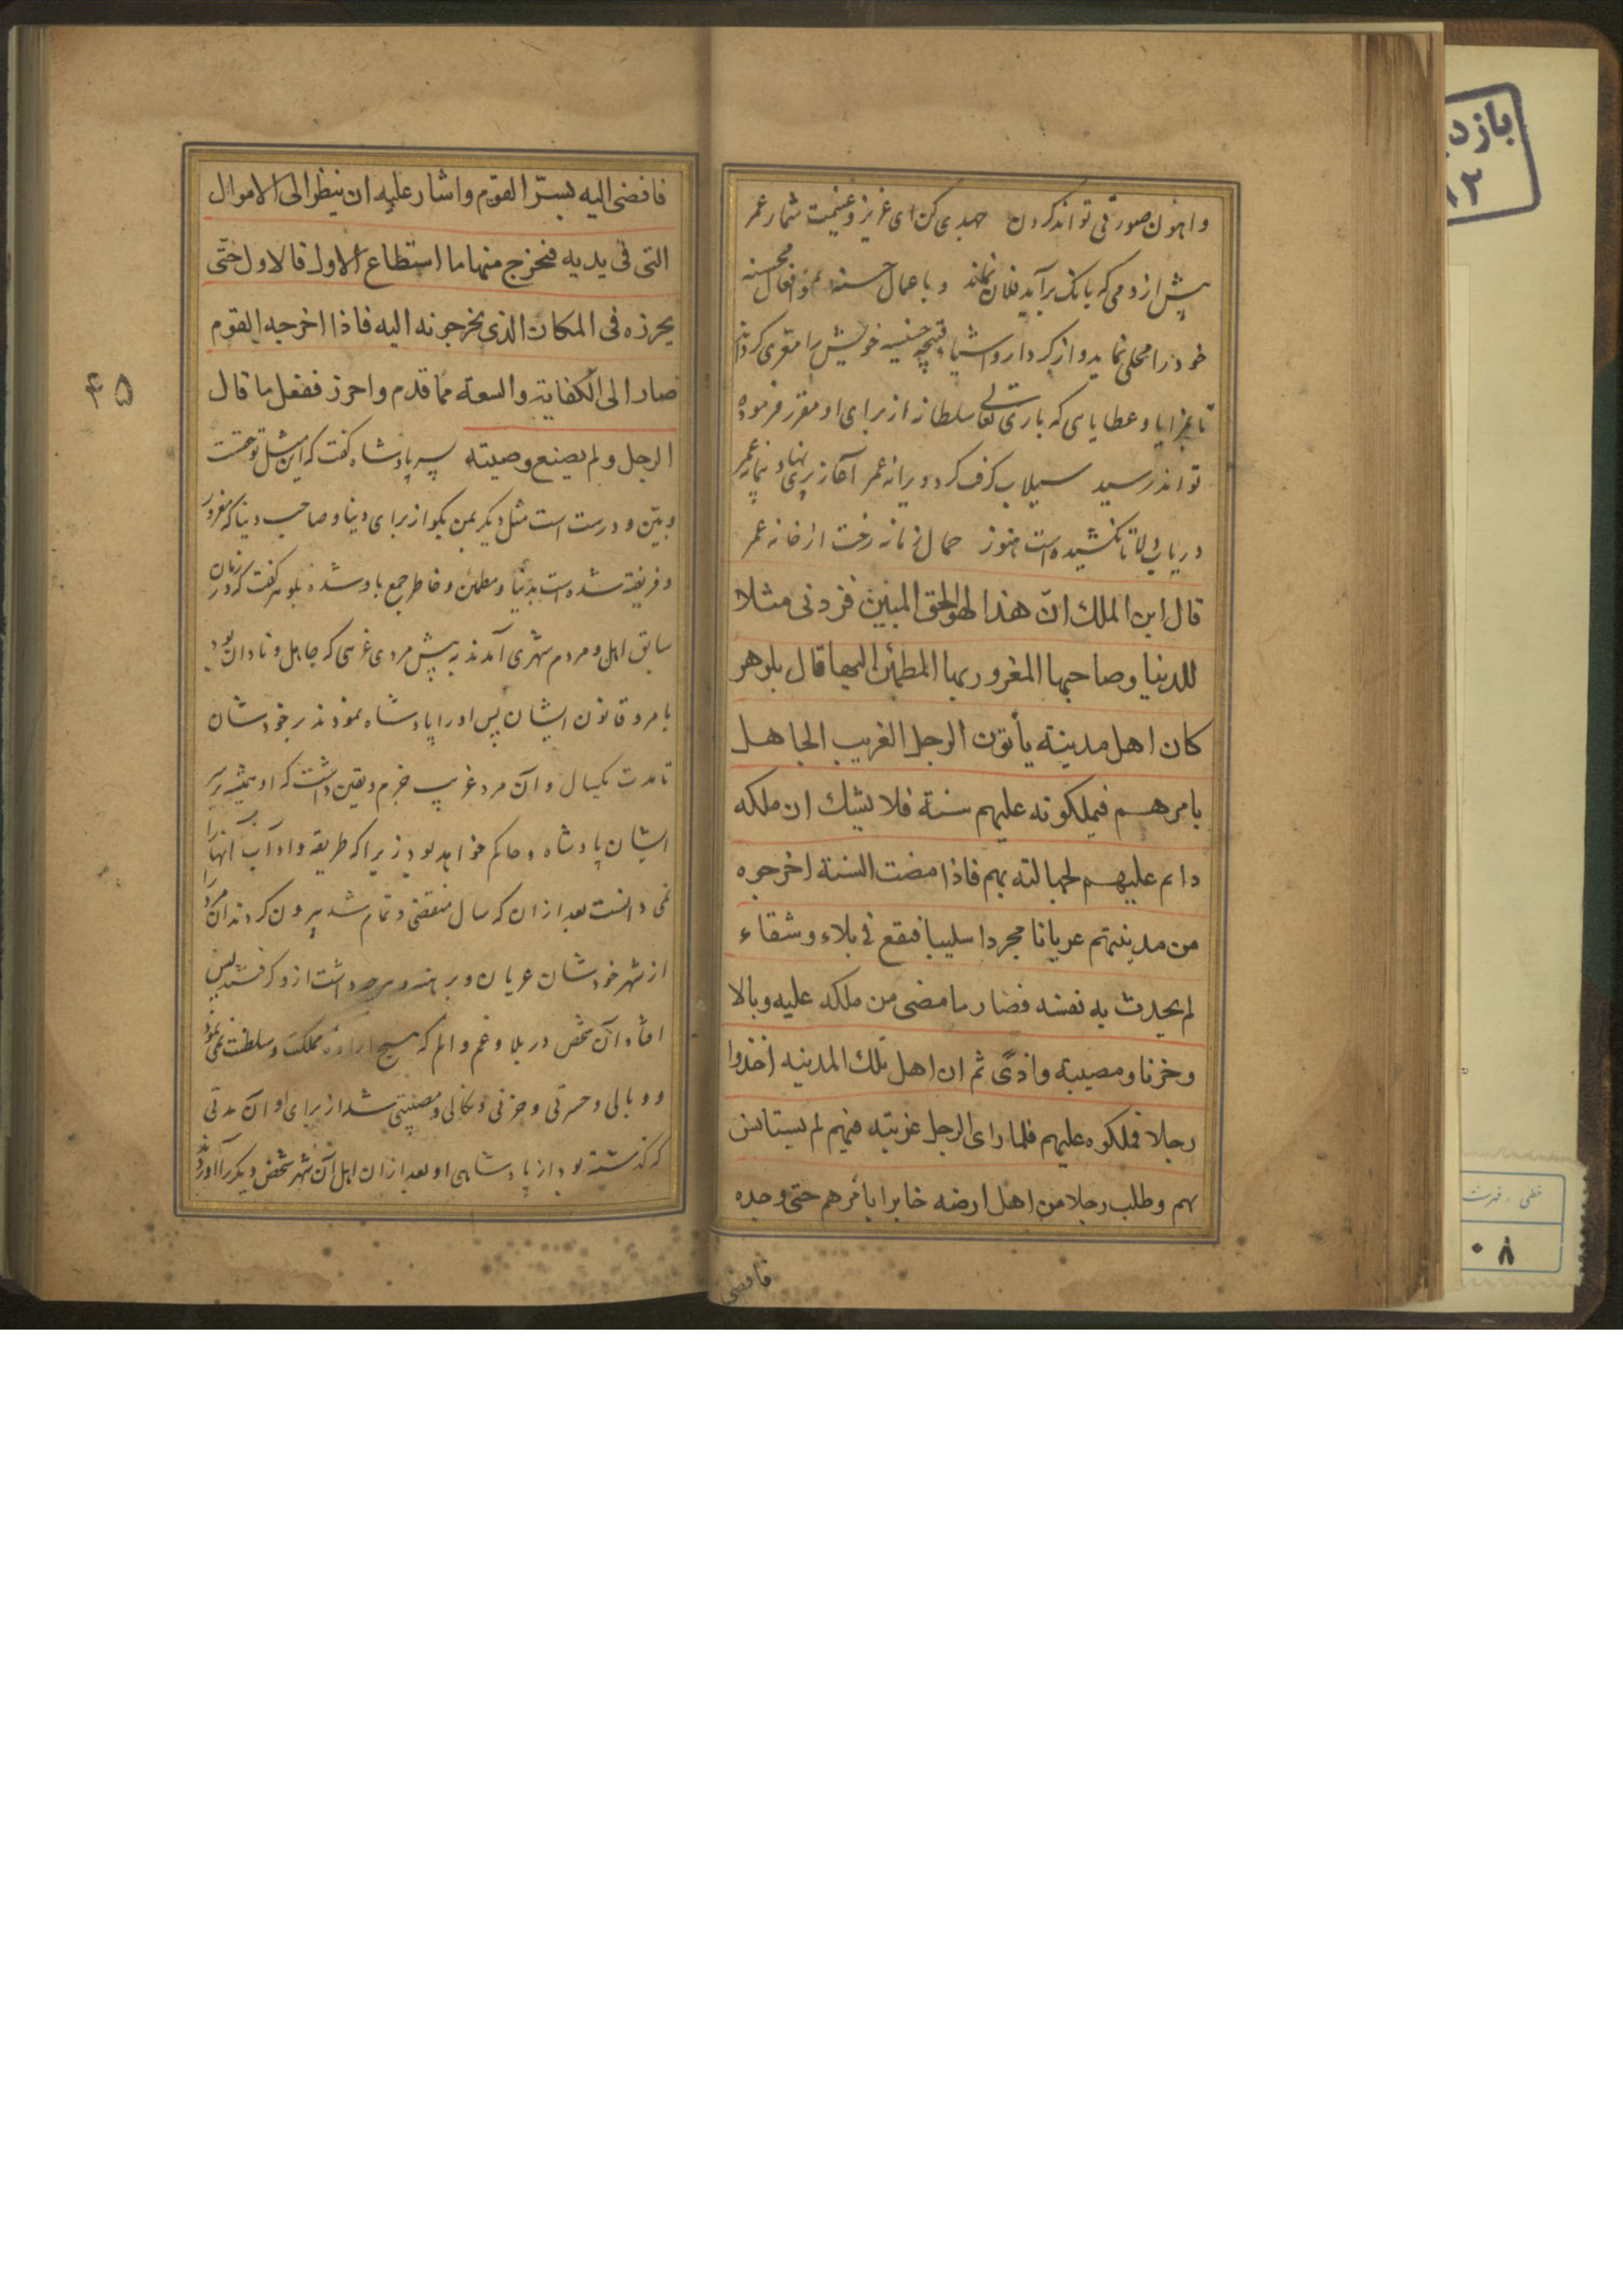 واهون صورتی تواند کردن جهدی کن ای عزیز و غنیمت شمار عمر
پیش از دمی که بانک برآید فلان نماند و باعمال حسنه و افعال محسنه
خود را محلی نماید و از کردار و اشیاء قبیحه خویش را متعری کرداند
تا بمزایا و عطایایی که باری تعالی سلطانه از برای او مقرر فرموده
تواند رسید سیلاب کرف کرد ویرانه عمر آغاز پری نهاد پیمانه عمر
دریاب دلا تا نکشیده است هنوز حمال زمانه رخت از خانه عمر
قال ابن الملک انّ هذا لهو الحق المبین فزدنی مثلا
للدنیا وصاحبها المغرور بها المطمئن الیها قال بلوهر
کان اهل مدینة یأتون الرجل الغریب الجاهل
بامرهم فیملکونه علیهم سنة فلا یشك ان ملکه
دائم علیهم لجهالته بهم فاذا مضت السنة اخرجوه
من مدینتهم عریانا مجردا سلیبا فیقع فی بلاء وشقاء
لم یحدث به نفسه فصار ما مضی من ملکه علیه وبالا
وحزنا ومصیبة واذی ثم ان اهل تلك المدینه اخذوا
رجلا فملکوه علیهم فلما رای الرجل غربته فیهم لم یستانس
بهم وطلب رجلا من اهل ارضه خابرا بامرهم حتی وجده
فافضی
فافضی الیه بسرّ القوم واشار علیه ان ینظر الی الاموال
التی فی یدیه فیخرج منها ما استطاع الاول فالاول حتّی
یحرزه فی المکان الذی یخرجونه الیه فاذا اخرجه القوم
صار الی الکفایة والسعة مما قدم واحرز ففعل ما قال
الرجل ولم یضیع وصیته پسر پادشاه کفت که این مثل تو حقست
و بیّن و درست است مثل دیکر بمن بکو از برای دنیا و صاحب دنیا که مغرور
و فریفته شده است بدنیا و مطمئن و خاطر جمع باو شده بلوهر کفت که در زمان
سابق اهل و مردم شهری آمدند به پیش مردی غریبی که جاهل و نادان بود
بامر و قانون ایشان پس او را پادشاه نمودند بر خودشان
تا مدت یکسال و آن مرد غریب جزم و یقین داشت که او همیشه بر
ایشان پادشاه و حاکم خواهد بود زیرا که طریقه و آداب آنها را
نمی دانست بعد از ان که سال منقضی و تمام شد بیرون کردند آن مرد را
از شهر خودشان عریان و برهنه و هرچه داشت ازو کرفتند پس
افتاد آن شخص در بلا و غم و الم که هیچ اراده مملکت و سلطنت نمی نمود
و وبالی و حسرتی و حزنی و نکالی و مصیبتی شد از برای او آن مدتی
که کذشته بود از پادشاهی او بعد از ان اهل آن شهر شخص دیکر را آوردند
۴۵
بازد
۸۲
خطی . فهرست
۰۸